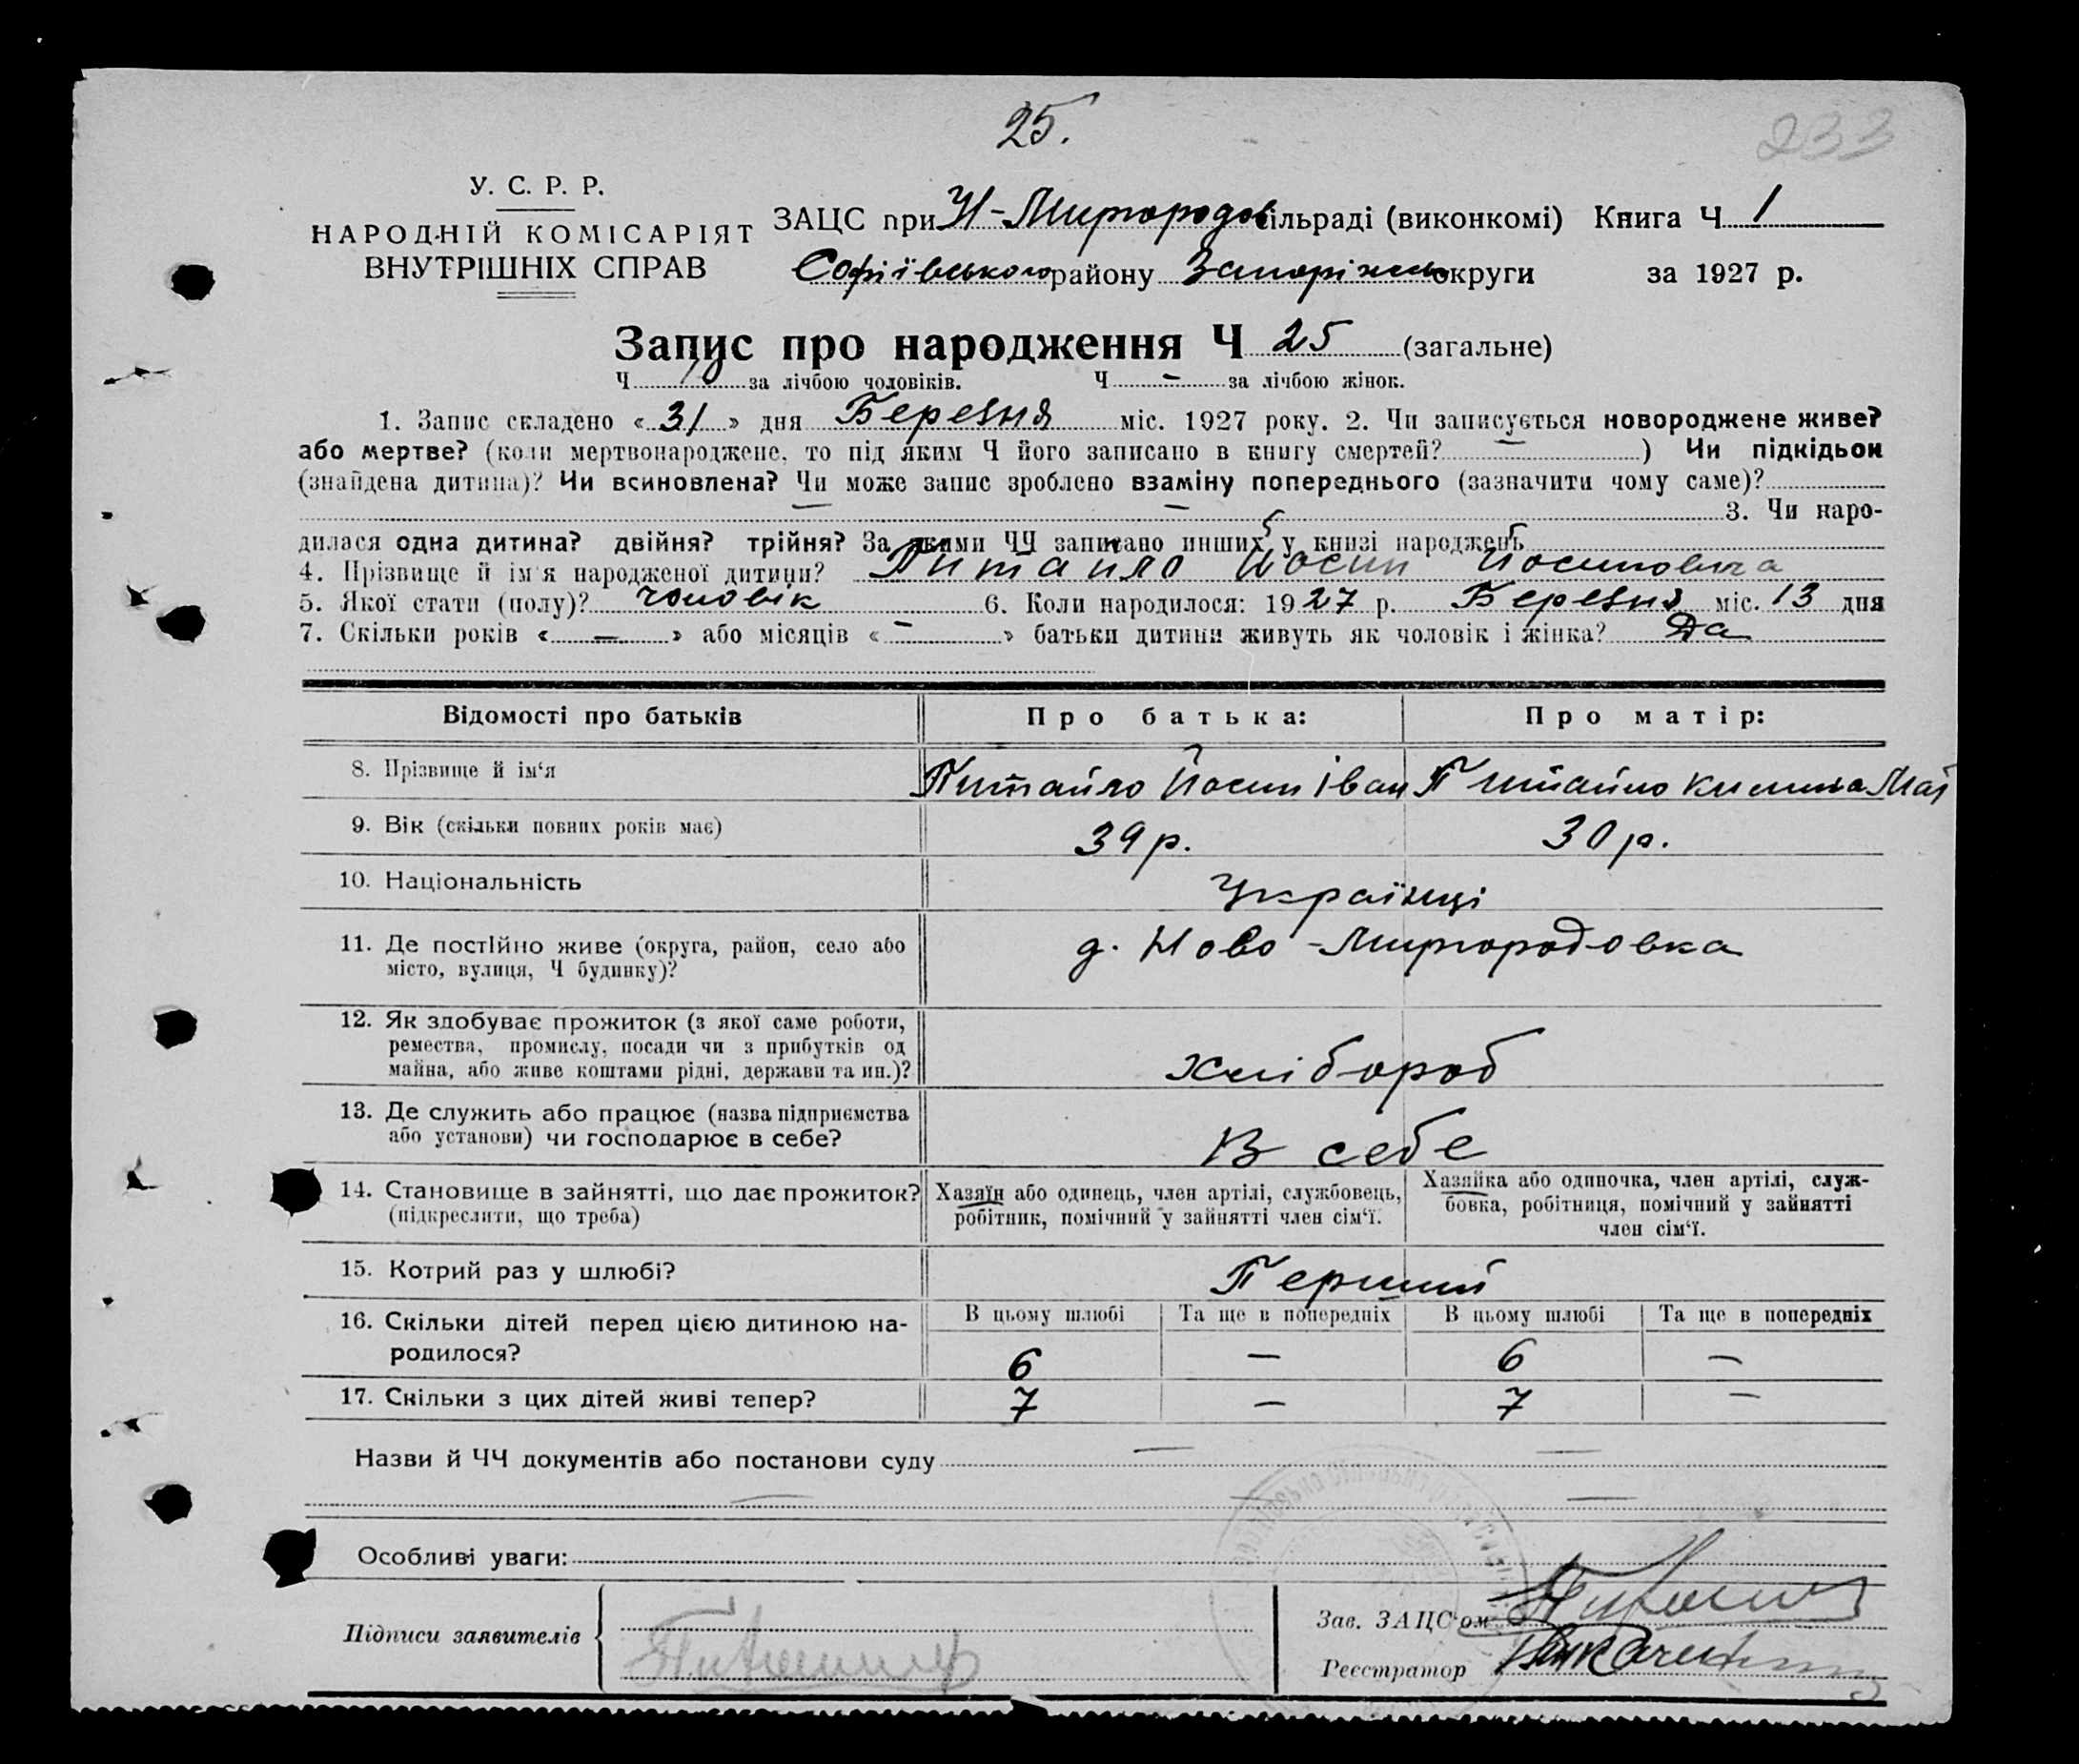 25.
233
У. С. Р. Р.
НАРОДНІЙ КОМІСАРІЯТ
ВНУТРІШНІХ СПРАВ
ЗАЦС при Н-Миргородов сільраді (виконкомі) Книга Ч 1
Софіївського району Запоріжськ округи за 1927 р.
Запис про народження Ч 25 (загальне)
Ч за лічбою чоловіків. Ч — за лічбою жінок.
1. Запис складено « 31 » дня Березня міс. 1927 року. 2. Чи записується новороджене живе?
або мертве? (коли мертвонароджене, то під яким Ч його записано в книгу смертей? — ) Чи підкідьок
(знайдена дитина)? Чи всиновлена? Чи може запис зроблено взаміну попереднього (зазначити чому саме)?
— — 3. Чи наро-
дилася одна дитина? двійня? трійня? За якими ЧЧ записано инших у книзі народжень
4. Прізвище й ім'я народженої дитини? Питайло Йосип Йосипович
5. Якої стати (полу)? чоловік 6. Коли народилося: 1927 р. Березня міс. 13 дня
7. Скільки років « — » або місяців « — » батьки дитини живуть як чоловік і жінка? Да
Відомості про батьків Про батька: Про матір:
8. Прізвище й ім'я Питайло Йосип Іван Питайло Килина
9. Вік (скільки повних років має) 39 р. 30 р.
10. Національність Українці
11. Де постійно живе (округа, район, село або
місто, вулиця, Ч будинку)? д. Ново-Миргородовка
12. Як здобуває прожиток (з якої саме роботи,
ремества, промислу, посади чи з прибутків од
майна, або живе коштами рідні, держави та ин.)? хлібороб
13. Де служить або працює (назва підприємства
або установи) чи господарює в себе? В себе
14. Становище в зайнятті, що дає прожиток?
(підкреслити, що треба)
Хазяїн або одинець, член артілі, службовець,
робітник, помічний у зайнятті член сім'ї.
Хазяйка або одиночка, член артілі, служ-
бовка, робітниця, помічний у зайнятті
член сім'ї.
15. Котрий раз у шлюбі? Перший
В цьому шлюбі Та ще в попередніх В цьому шлюбі Та ще в попередніх
16. Скільки дітей перед цією дитиною на-
родилося? 6 — 6 —
17. Скільки з цих дітей живі тепер? 7 — 7 —
Назви й ЧЧ документів або постанови суду — —
— — —
Особливі уваги:
Підписи заявителів
Зав. ЗАЦС'ом
Реєстратор